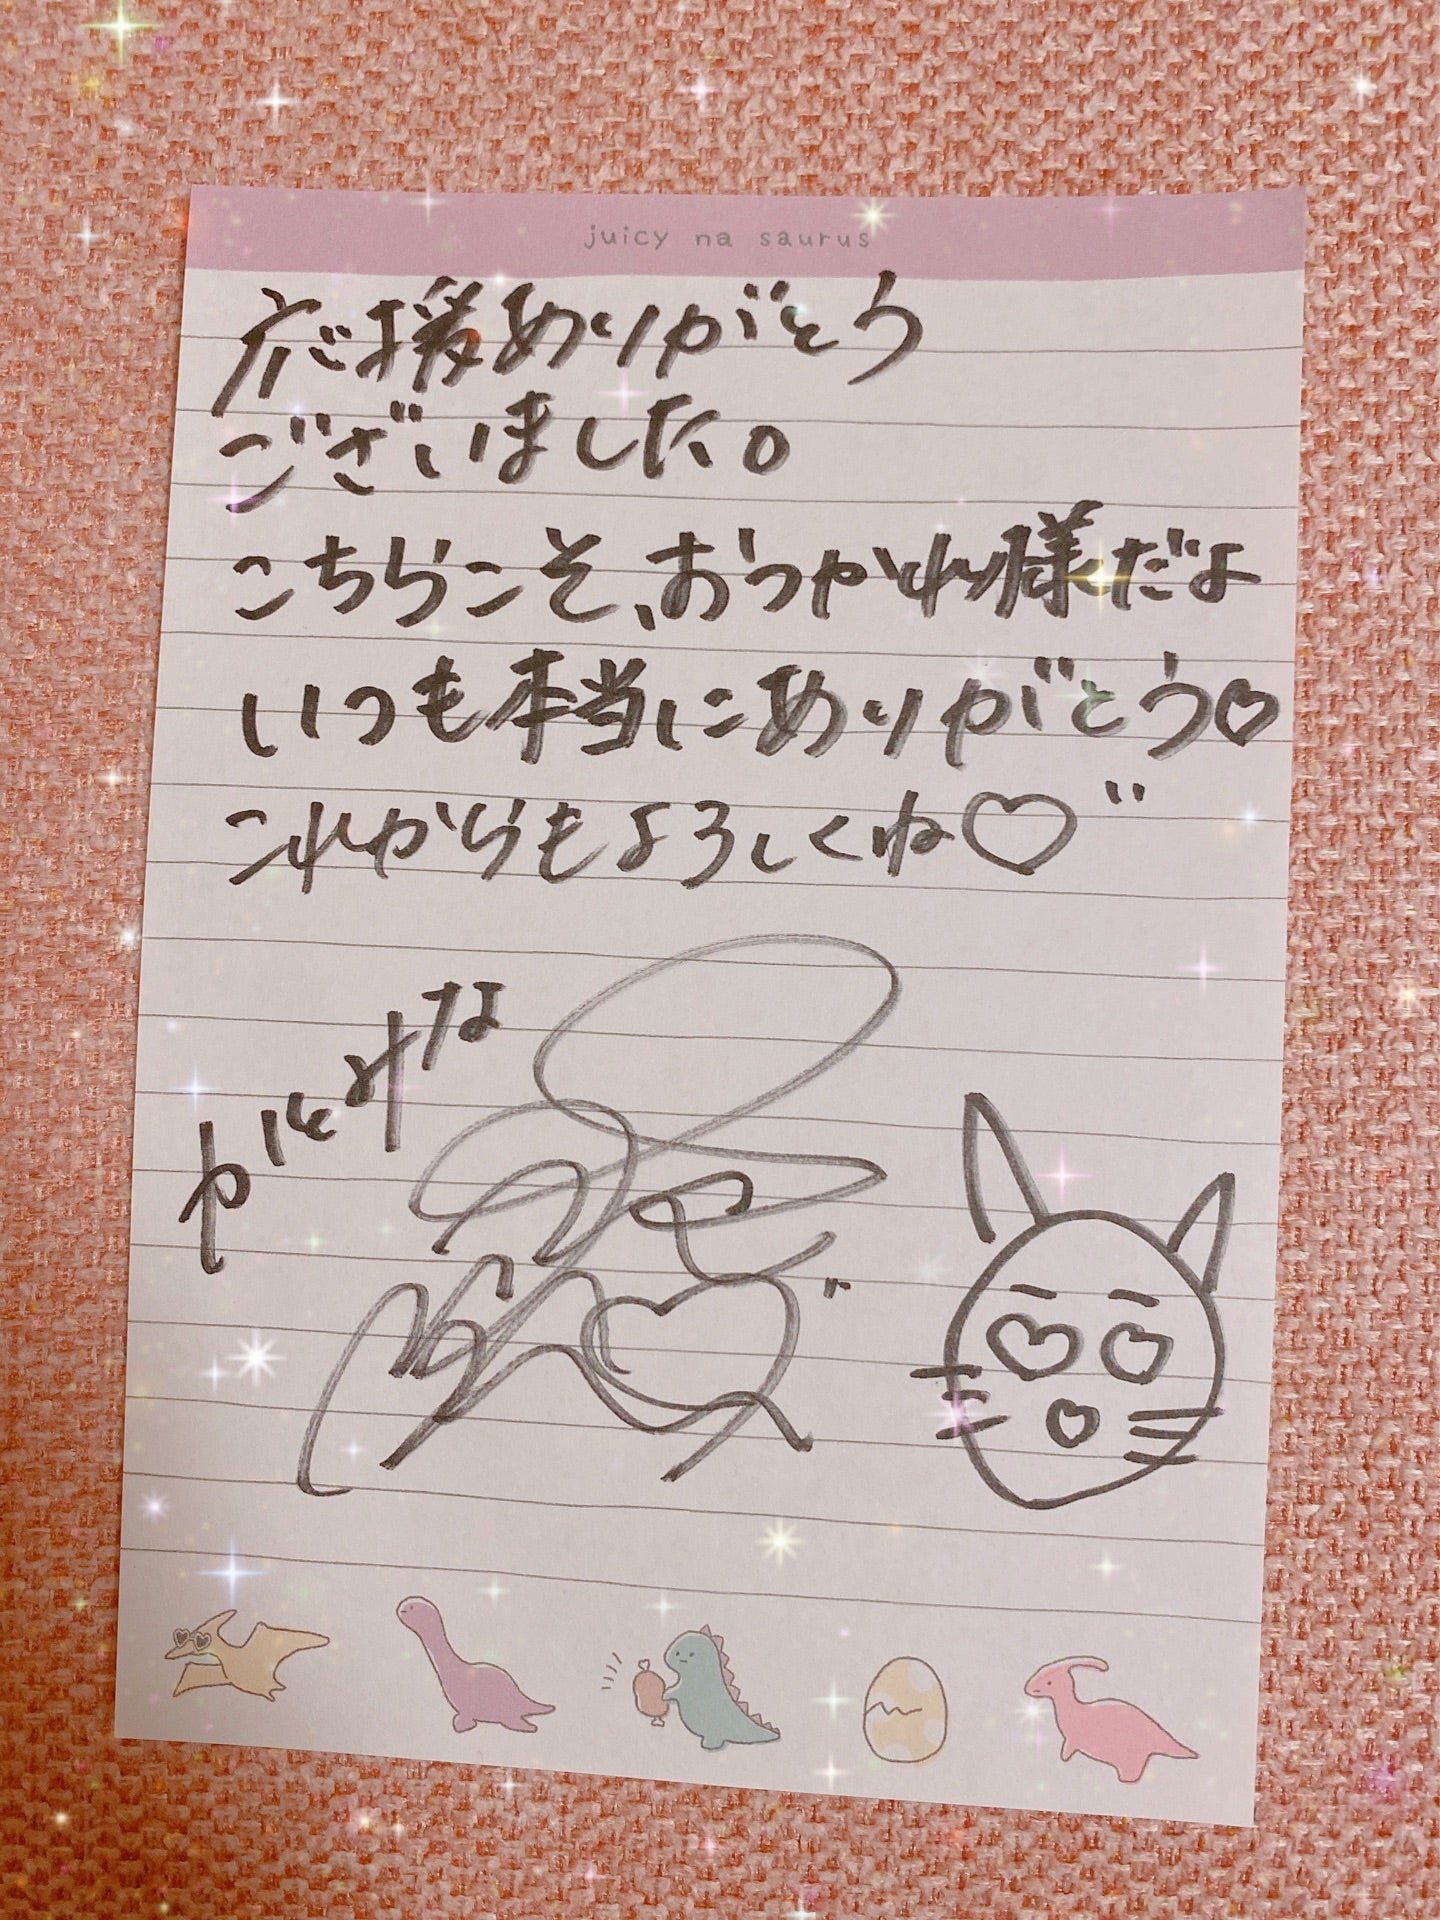 juicy na saurus
応援ありがとう
ございました。
こちらこそ、おつかれ様だよ
いつも本当にありがとう♡
これからもよろしくね♡"
やまとみな